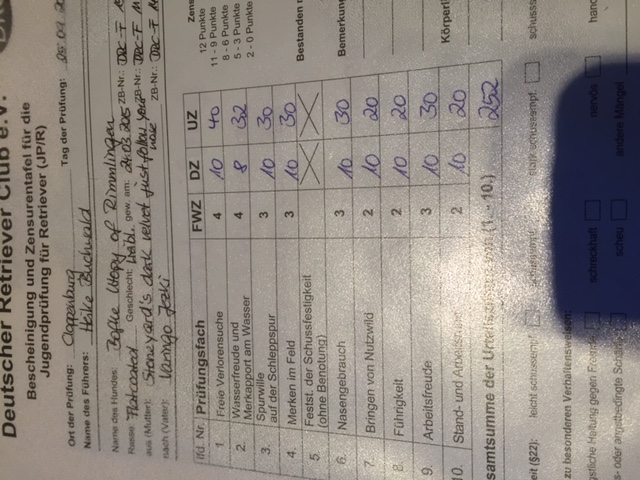 Deutscher Retriever Club e.V.
Bescheinigung und Zensurentafel für die
Jugendprüfung für Retriever (JP/R)
Ort der Prüfung: Cloppenburg Tag der Prüfung: 05.09.
Name des Führers: Heike Buchwald
Name des Hundes: of Rimmlingen ZB-Nr.: DRC-F
Rasse: Flatcoated Geschlecht: gew. am: 24.03.2015 ZB-Nr.: DRC-F
aus (Mutter): Stoneyard's dark velvet just follow your nose ZB-Nr.: DRC-F
nach (Vater): Varingo
lfd. Nr. Prüfungsfach FWZ DZ UZ
1 Freie Verlorensuche 4 10 40
2. Wasserfreude und
Merkapport am Wasser 4 8 32
3. Spurwille
auf der Schleppspur 3 10 30
4. Merken im Feld 3 10 30
5. Festst. der Schussfestigkeit
(ohne Benotung)
6. Nasengebrauch 3 10 30
7. Bringen von Nutzwild 2 10 20
8. Führigkeit 2 10 20
9. Arbeitsfreude 3 10 30
10. Stand- und 2 10 20
samtsumme der (1. - 10.) 252
12 Punkte
11 - 9 Punkte
8 - 6 Punkte
5 - 3 Punkte
2 - 0 Punkte
Bestanden
Bemerkung
Körperl
eit (§22): leicht schussempf. schussempf. schusss
zu besonderen Verhaltensweisen:
schreckhaft nervös hand
scheu andere Mängel